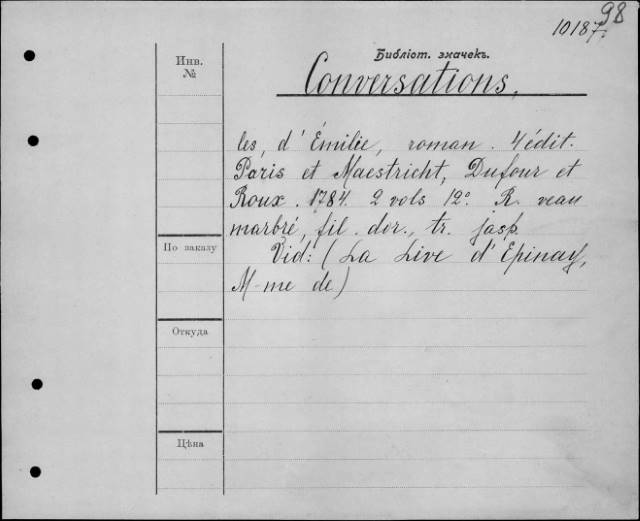 98
10187.
Инв.
№
Библіот. значекъ.
Conversations,
les, d'Émilie, roman. 4 édit.
Paris et Maestricht, Dufour et
Roux. 1784. 2 vols 12º. R. veau
marbré, fil. dor., tr. jasp.
По заказу
Vid: (La Live d'Epinay,
M-me de)
Откуда
Цѣна